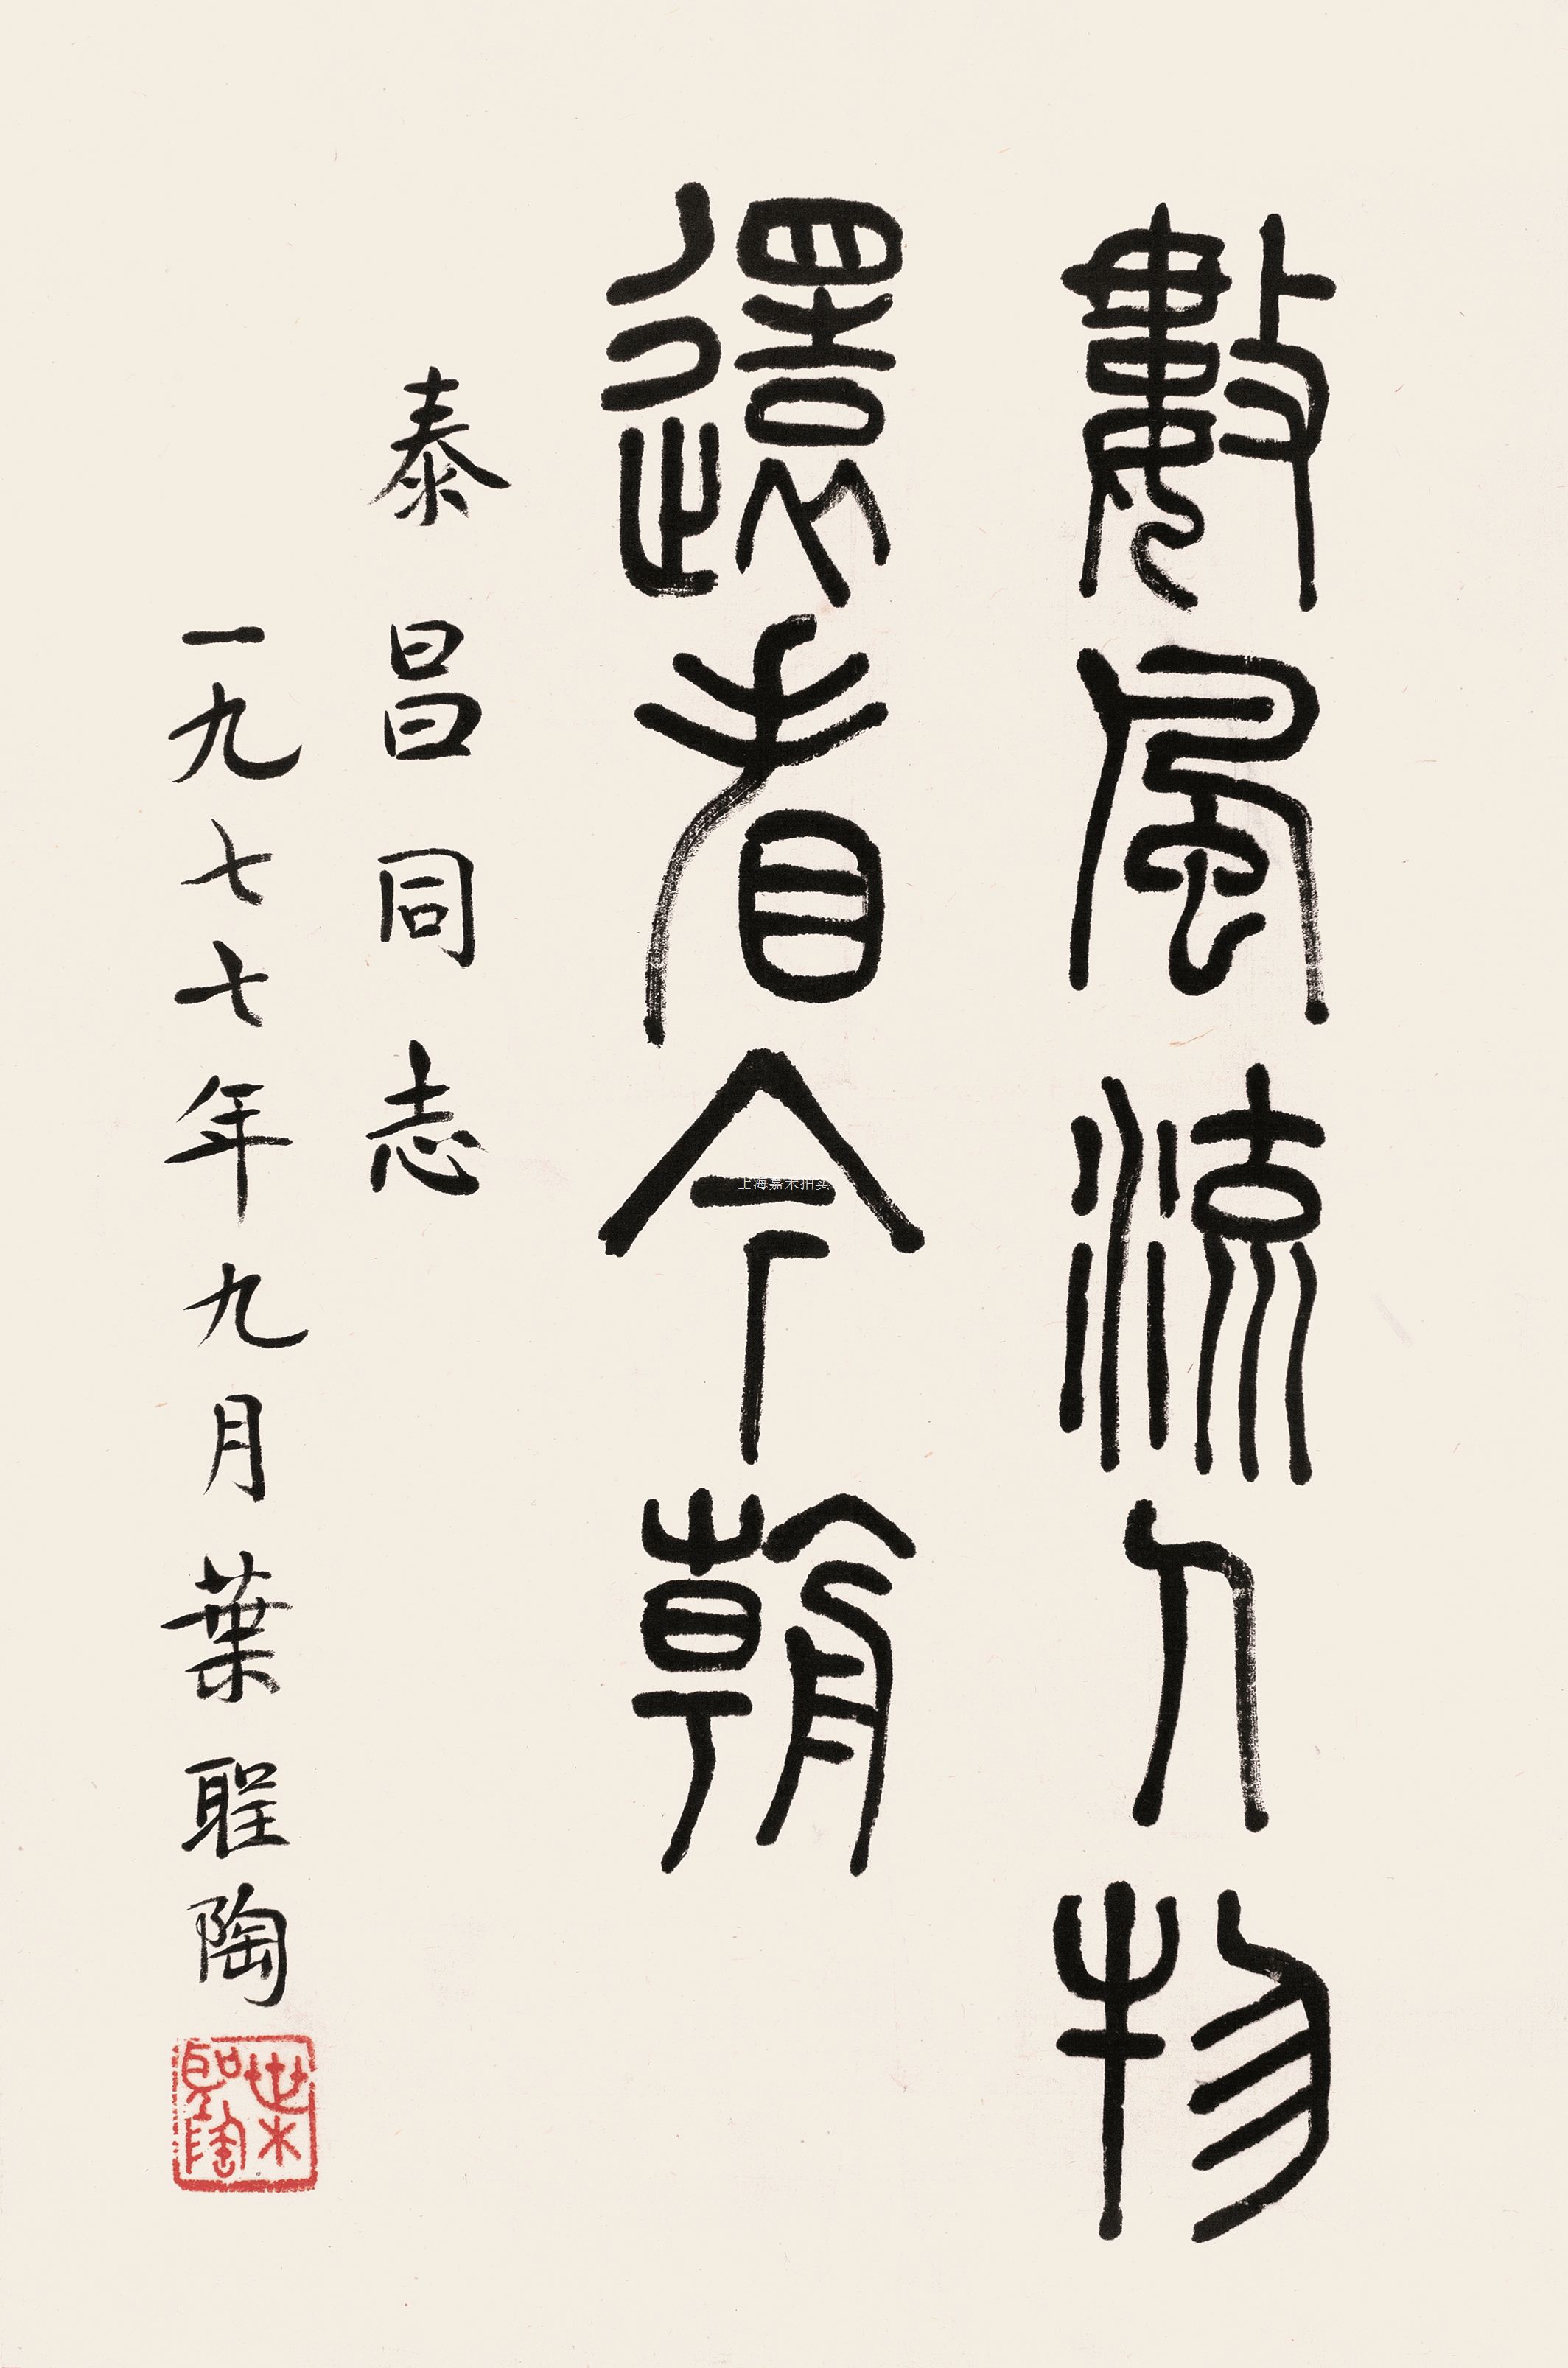 數風流人物
還看今朝
泰昌同志
一九七七年九月葉聖陶
葉聖陶
上海嘉禾拍卖